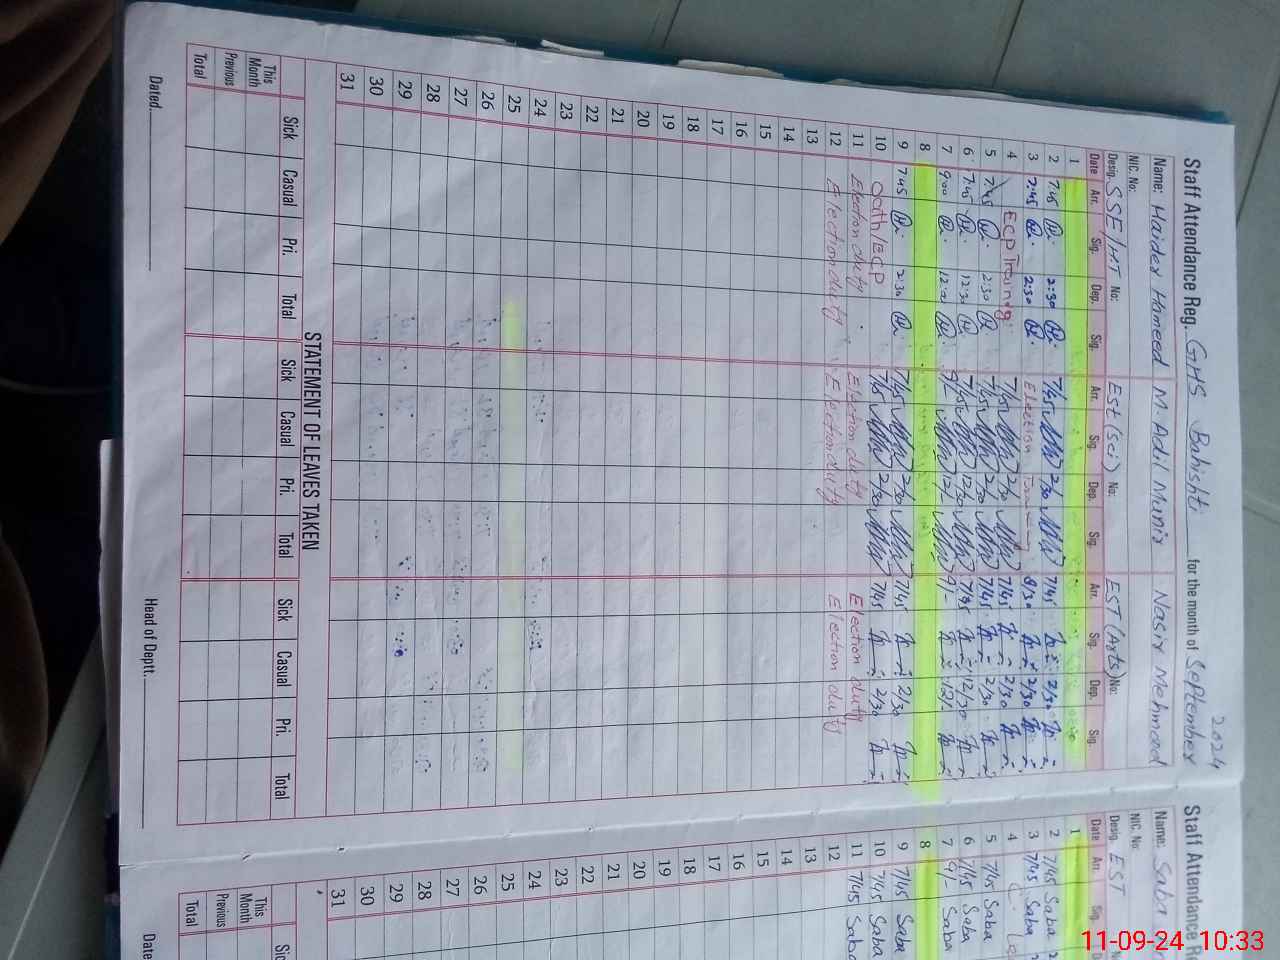 Staff Attendance Reg. GHS Bahishti for the month of September 2024
Name: Haider Hameed M. Adil Munir Nasir Mehmood
NIC. No:
Desig. SSE/H.T No: Est (Sci) No: EST (Arts) No:
Date Arr. Sig. Dep. Sig. Arr. Sig. Dep. Sig. Arr. Sig. Dep. Sig.
1
2 7:45 2:30 7/45 2/30 7/45 2/30
3 7:45 2:30 Election 8/30 2/30
4 ECP Training 7/45 2/30 7/45 2/30
5 7:45 2:30 7/45 2/30 7/45 2/30
6 7:45 12:30 7/45 12/30 7/45 12/30
7 9:00 12:00 9/- 12/- 9/- 12/-
8
9 7:45 2:30 7/45 2/30 7/45 2/30
10 Oath/ECP 7/45 2/30 7/45 2/30
11 Election duty Election duty Election duty
12 Election duty Election duty Election duty
13
14
15
16
17
18
19
20
21
22
23
24
25
26
27
28
29
30
31
STATEMENT OF LEAVES TAKEN
Sick Casual Pri. Total Sick Casual Pri. Total Sick Casual Pri Total
This Month
Previous
Total
Dated. Head of Deptt.
Staff Attendance Re
Name: Saba
NIC. No:
Desig. EST
Date Arr. Sig.
1
2 7/45 Saba 2
3 7/45 Saba 2
4
5 7/45 Saba
6 7/45 Saba
7 9/- Saba
8
9 7/45 Saba
10 7/45 Saba
11 7/45 Saba
12
13
14
15
16
17
18
19
20
21
22
23
24
25
26
27
28
29
30
31
Sic
This Month
Previous
Total
Date
11-09-24 10:33